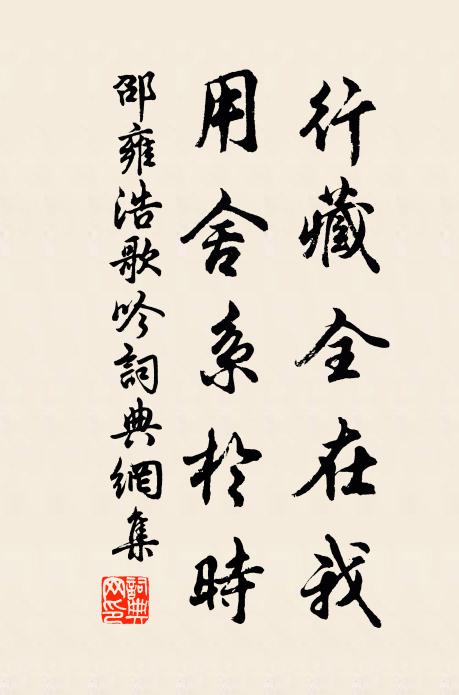 行藏全在我
用舍系於時
邵雍浩歌吟詞典網集
詞典網印